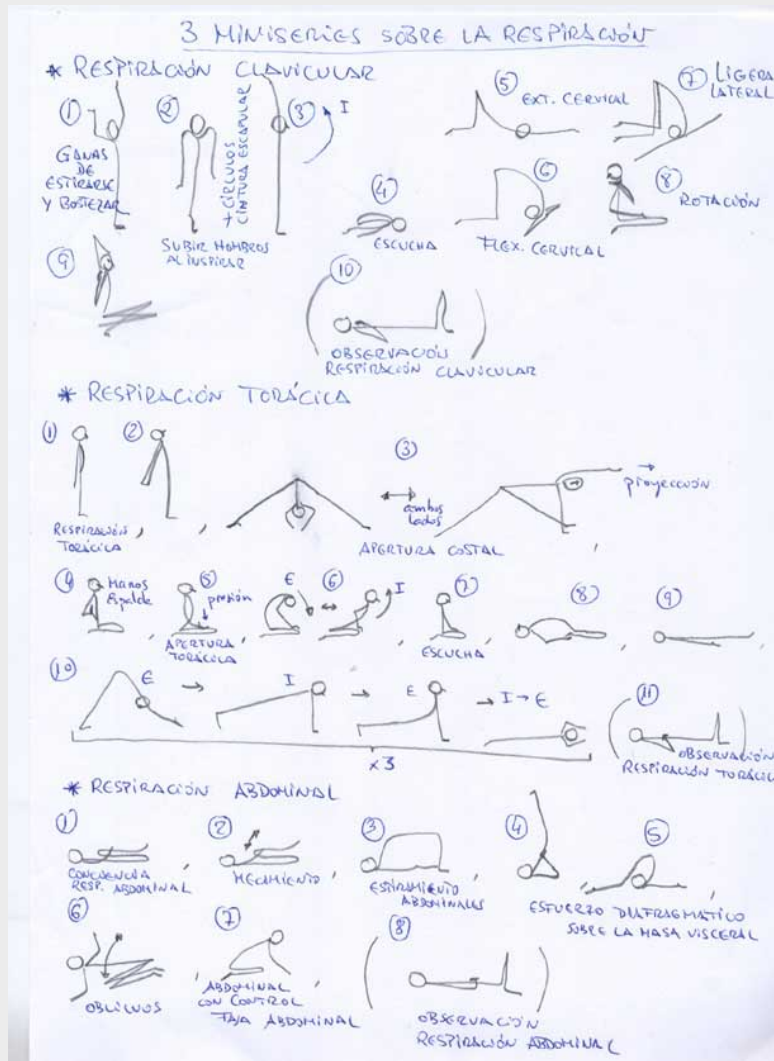 3 MINISERIES SOBRE LA RESPIRACIÓN
* RESPIRACIÓN CLAVICULAR
①
GANAS
DE
ESTIRARSE
Y BOSTEZAR
②
SUBIR HOMBROS
AL INSPIRAR
+ CÍRCULOS
CINTURA ESCAPULAR
③
I
④
ESCUCHA
⑤
EXT. CERVICAL
⑥
FLEX. CERVICAL
⑦ LIGERA
LATERAL
⑧
ROTACIÓN
⑨
⑩
OBSERVACIÓN
RESPIRACIÓN CLAVICULAR
* RESPIRACIÓN TORÁCICA
①
RESPIRACIÓN
TORÁCICA
②
③
ambos
lados
proyección
APERTURA COSTAL
④
Manos
Espalda
⑤
presión
APERTURA
TORÁCICA
E
⑥
I
⑦
ESCUCHA
⑧
⑨
⑩
E → I → E → I → E
x3
⑪
OBSERVACIÓN
RESPIRACIÓN TORÁCICA
* RESPIRACIÓN ABDOMINAL
①
CONCIENCIA
RESP. ABDOMINAL
②
MECIMIENTO
③
ESTIRAMIENTO
ABDOMINALES
④
⑤
ESFUERZO DIAFRAGMÁTICO
SOBRE LA MASA VISCERAL
⑥
OBLICUOS
⑦
ABDOMINAL
CON CONTROL
FAJA ABDOMINAL
⑧
OBSERVACIÓN
RESPIRACIÓN ABDOMINAL